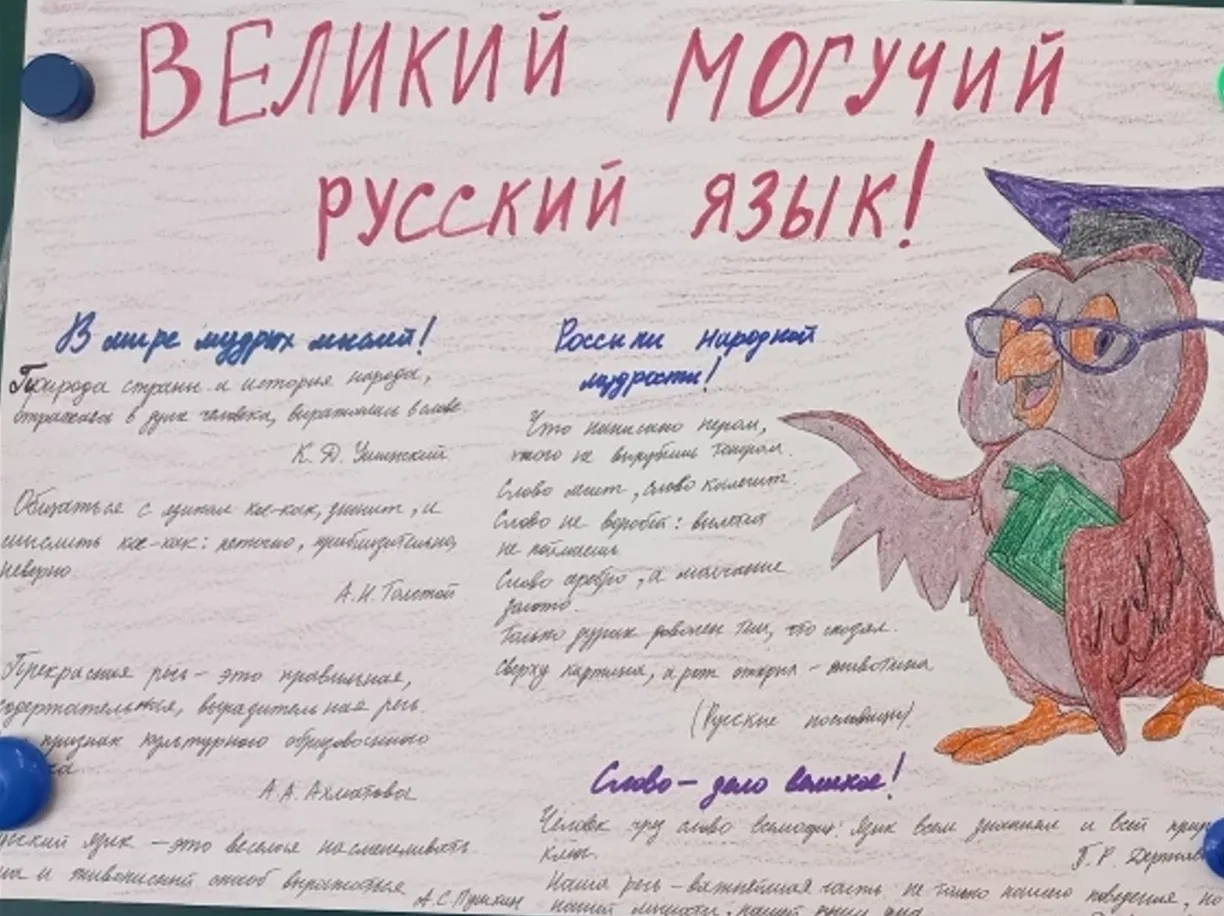 ВЕЛИКИЙ МОГУЧИЙ
РУССКИЙ ЯЗЫК!
В мире мудрых мыслей!
Природа страны и история народа,
отражаясь в душе человека, выражались в слове
К. Д. Ушинский
Общаться с языком кое-как, значит, и
мыслить кое-как: неточно, приблизительно,
неверно
А. Н. Толстой
Прекрасная речь - это правильная,
содержательная, выразительная речь.
признак культурного образованного
А. А. Ахматова
язык - это
и живописный способ выражаться
А. С. Пушкин
Россыпи народной
мудрости!
Что написано пером,
того не вырубишь топором.
Слово
Слово не воробей: вылетит
не поймаешь
Слово серебро, а молчание
золото.
Только дурак доволен тем, что сказал.
Сверху картина, а рот открыл - животина
(Русские пословицы)
Слово - дело великое!
Человек чрез слово всемогущ: Язык всем знаниям и всей
ключ.
Г. Р.
Наша речь - важнейшая часть не только нашего поведения, но
нашей